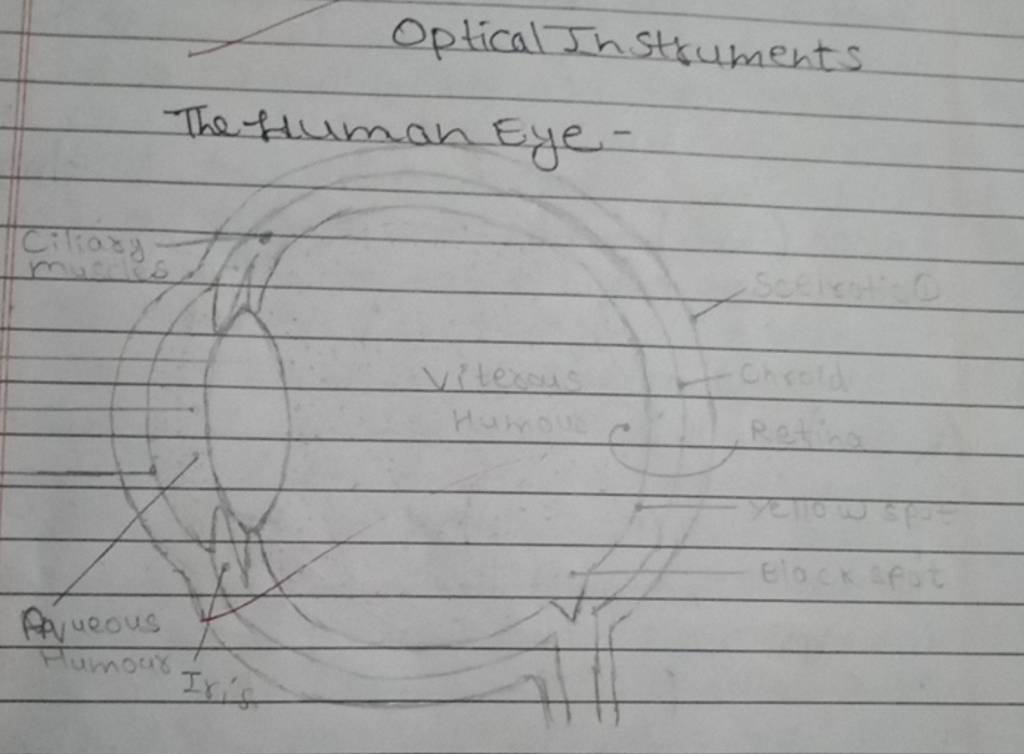 Optical Instruments
The Human Eye -
Ciliary
muscles
Sclerotic
Viterous
Humour
Chroid
Retina
Yellow spot
Black spot
Aqueous
Humour
Iris